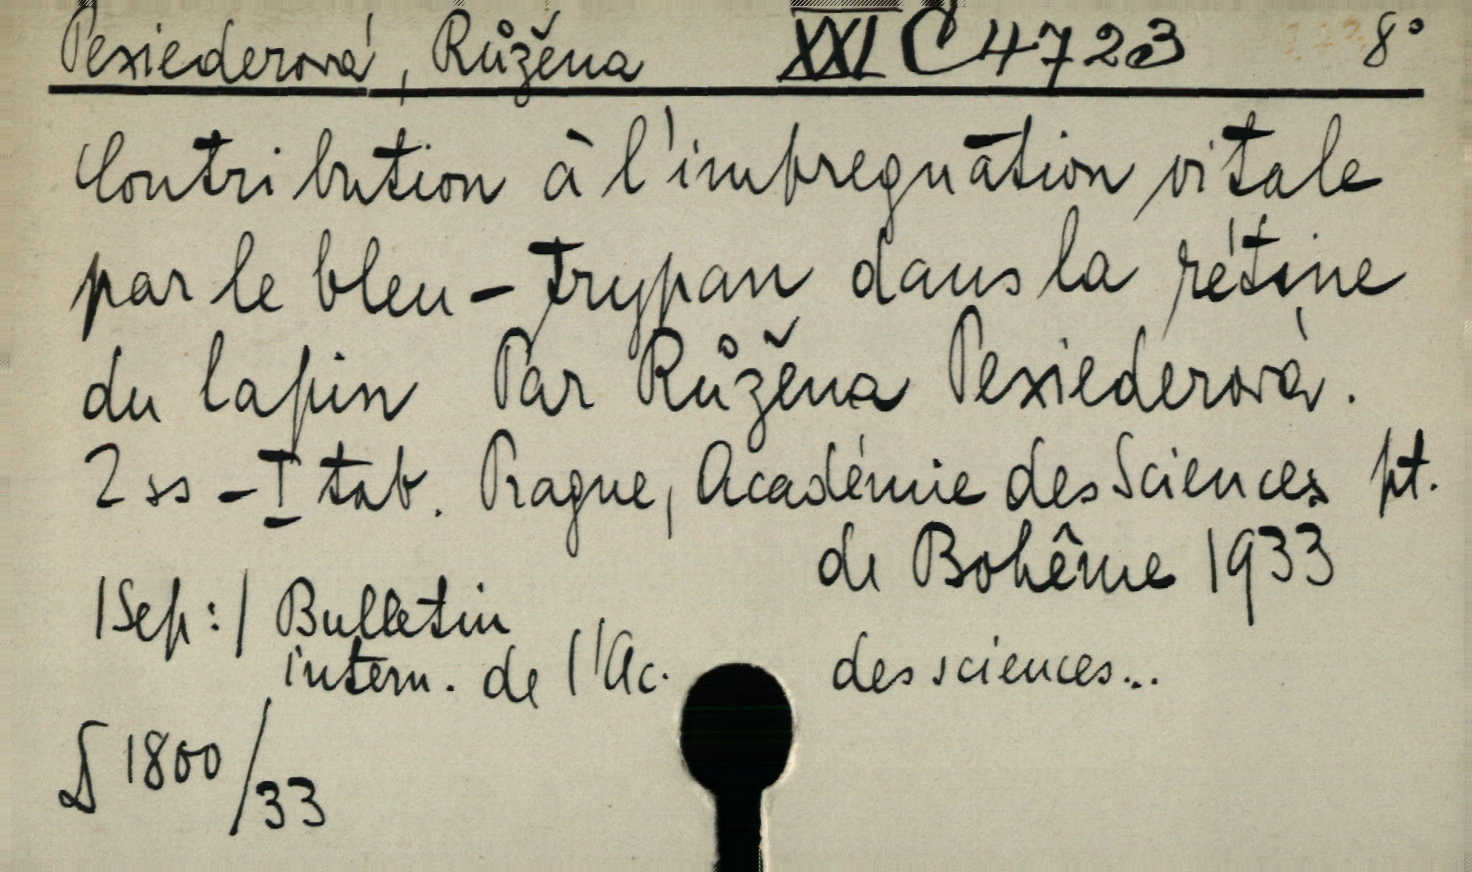 Pexiederová, Růžena XXI C 4723 8°
Contribution à l'imbregnation vitale
par le bleu - trypan dans la rétine
du lapin Par Růžena Pexiederová.
2 ss - I tab. Prague, Académie des Sciences pt.
de Bohême 1933
/Sep:/ Bulletin
intern. de l'Ac. des sciences...
D 1800/33